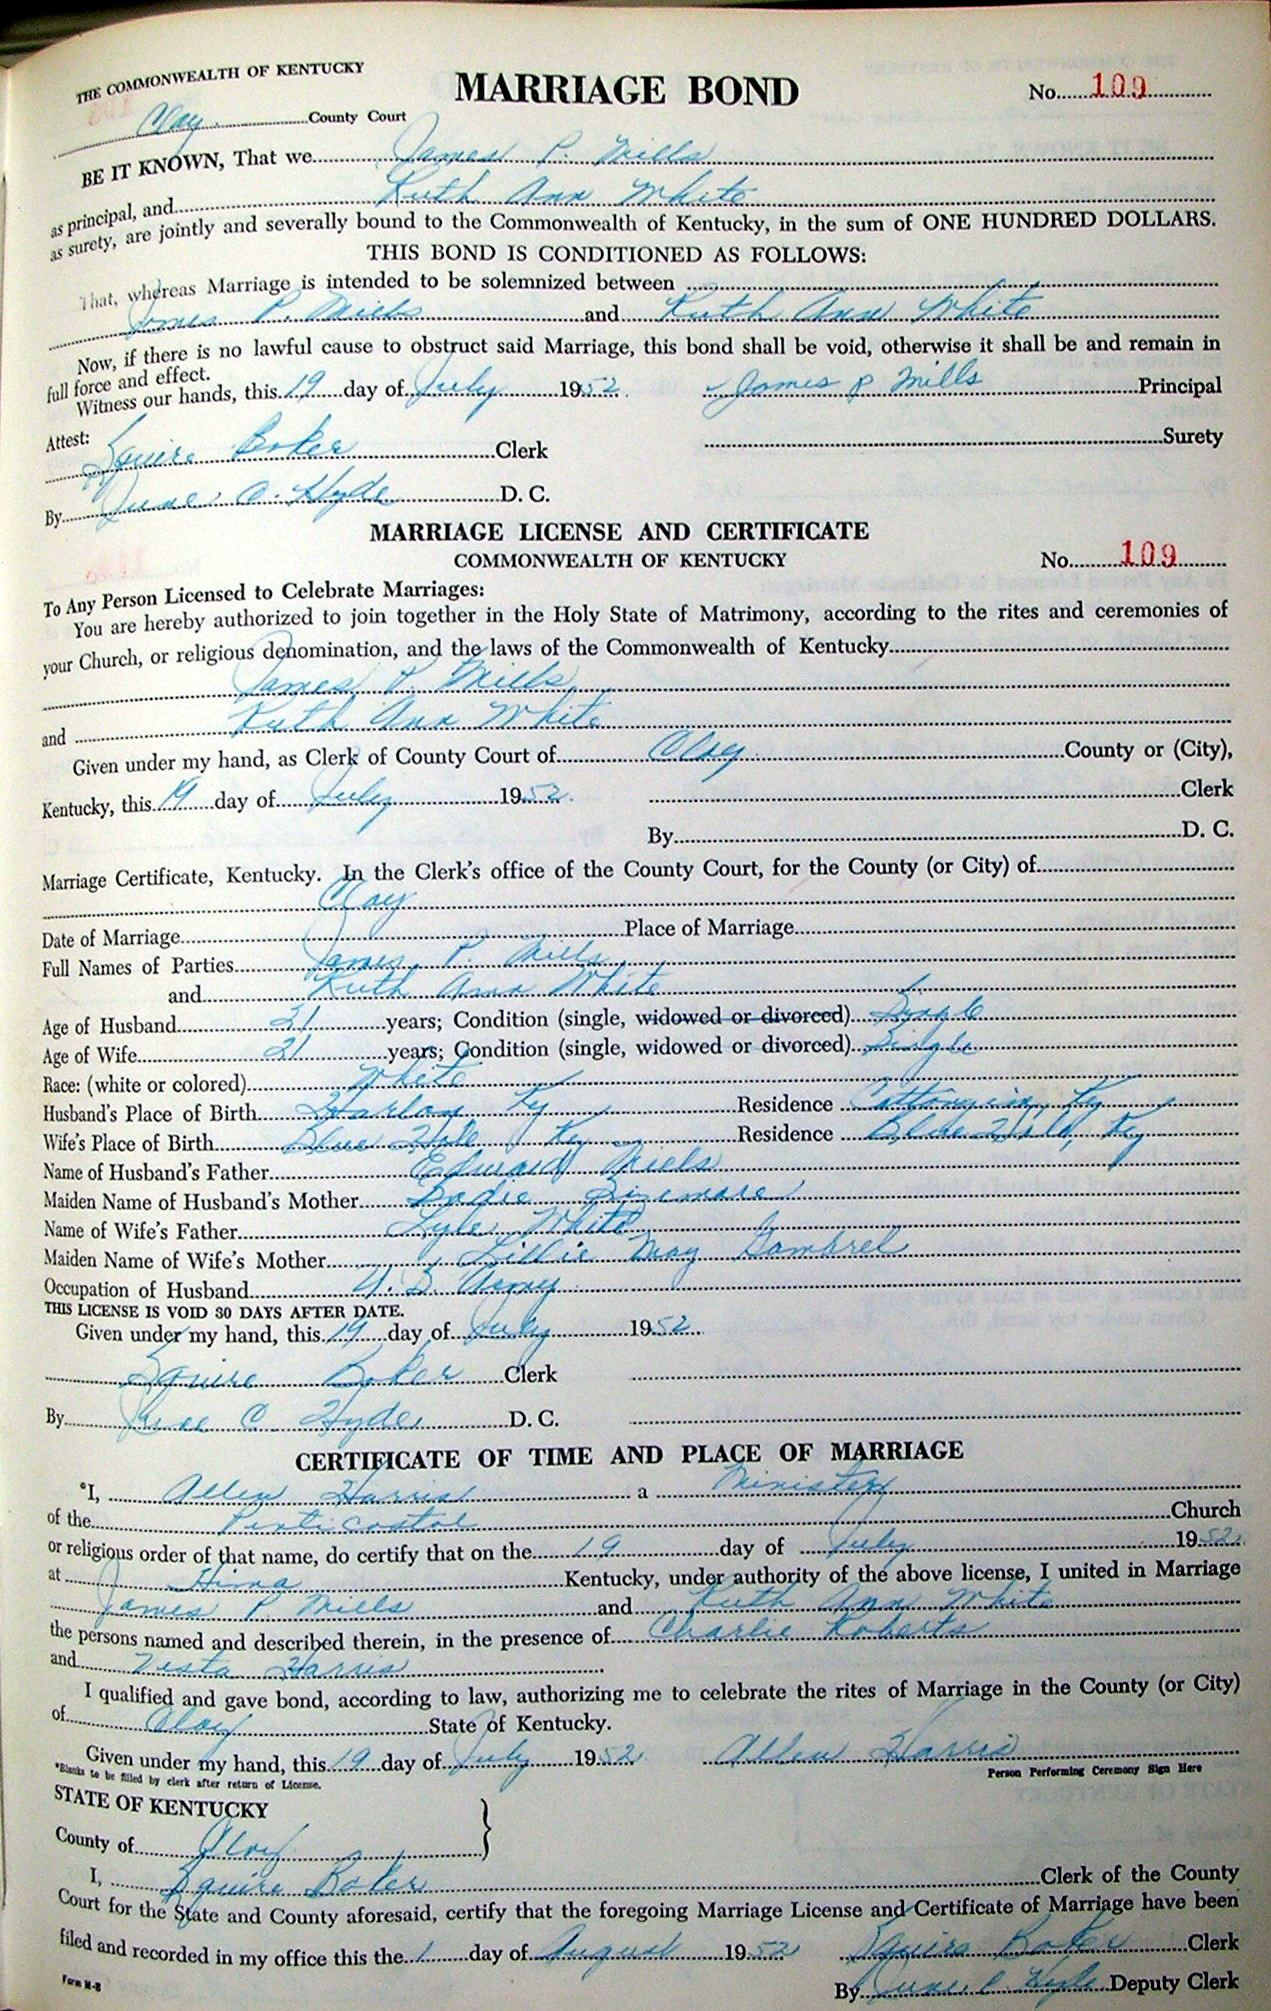 THE COMMONWEALTH OF KENTUCKY
MARRIAGE BOND
No. 109
Clay County Court
BE IT KNOWN, That we James P. Mills
as principal, and Ruth Ann White
as surety, are jointly and severally bound to the Commonwealth of Kentucky, in the sum of ONE HUNDRED DOLLARS.
THIS BOND IS CONDITIONED AS FOLLOWS:
That, whereas Marriage is intended to be solemnized between
James P. Mills and Ruth Ann White
Now, if there is no lawful cause to obstruct said Marriage, this bond shall be void, otherwise it shall be and remain in
full force and effect.
Witness our hands, this 19 day of July 1952. James P Mills Principal
Attest: Surety
Squire Baker Clerk
By June C. Hyde D. C.
MARRIAGE LICENSE AND CERTIFICATE
COMMONWEALTH OF KENTUCKY No. 109
To Any Person Licensed to Celebrate Marriages:
You are hereby authorized to join together in the Holy State of Matrimony, according to the rites and ceremonies of
your Church, or religious denomination, and the laws of the Commonwealth of Kentucky
James P Mills
and Ruth Ann White
Given under my hand, as Clerk of County Court of Clay County or (City),
Kentucky, this 19 day of July 1952. Clerk
By D. C.
Marriage Certificate, Kentucky. In the Clerk's office of the County Court, for the County (or City) of
Clay
Date of Marriage Place of Marriage
Full Names of Parties James P. Mills
and Ruth Ann White
Age of Husband 21 years; Condition (single, widowed or divorced) Single
Age of Wife 21 years; Condition (single, widowed or divorced) Single
Race: (white or colored) White
Husband's Place of Birth Harlan Ky Residence Cottongim, Ky
Wife's Place of Birth Blue Hole Ky Residence Blue Hole, Ky
Name of Husband's Father Edward Mills
Maiden Name of Husband's Mother Sizemore
Name of Wife's Father Lyle White
Maiden Name of Wife's Mother Lillie May Gambrel
Occupation of Husband U. S. Army
THIS LICENSE IS VOID 30 DAYS AFTER DATE.
Given under my hand, this 19 day of July 1952.
Squire Baker Clerk
By June C. Hyde D. C.
CERTIFICATE OF TIME AND PLACE OF MARRIAGE
*I, Allen Harris a Minister
of the Penticostal Church
or religious order of that name, do certify that on the 19 day of July 1952.
at Hima Kentucky, under authority of the above license, I united in Marriage
James P. Mills and Ruth Ann White
the persons named and described therein, in the presence of Charlie Roberts
and Vesta Harris
I qualified and gave bond, according to law, authorizing me to celebrate the rites of Marriage in the County (or City)
of Clay State of Kentucky.
Given under my hand, this 19 day of July 1952. Allen Harris
*Blanks to be filled by clerk after return of License. Person Performing Ceremony Sign Here
STATE OF KENTUCKY
County of Clay }
I, Squire Baker Clerk of the County
Court for the State and County aforesaid, certify that the foregoing Marriage License and Certificate of Marriage have been
filed and recorded in my office this the 1 day of August 1952 Squire Baker Clerk
Form M-8 By June C Hyde Deputy Clerk